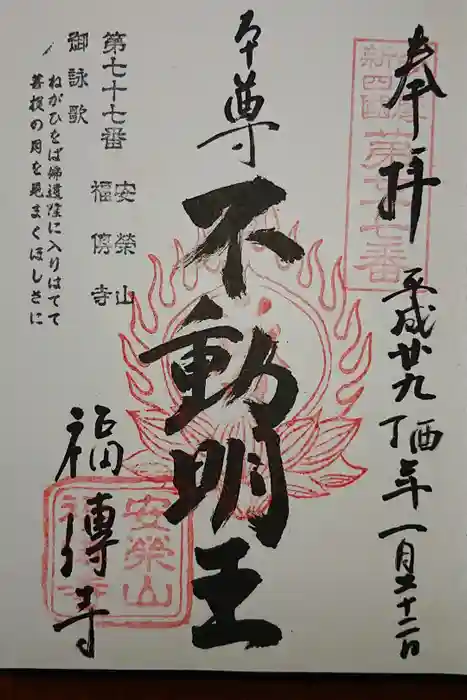 奉拝
多摩
新四國
第七十七番
平成廿九丁酉年一月二十二日
本尊
不動明王
福傳寺
安榮山
福傳寺
第七十七番 安榮山
福傳寺
御詠歌
ねがひをば佛道隆に入りはてて
菩提の月を見まくほしさに